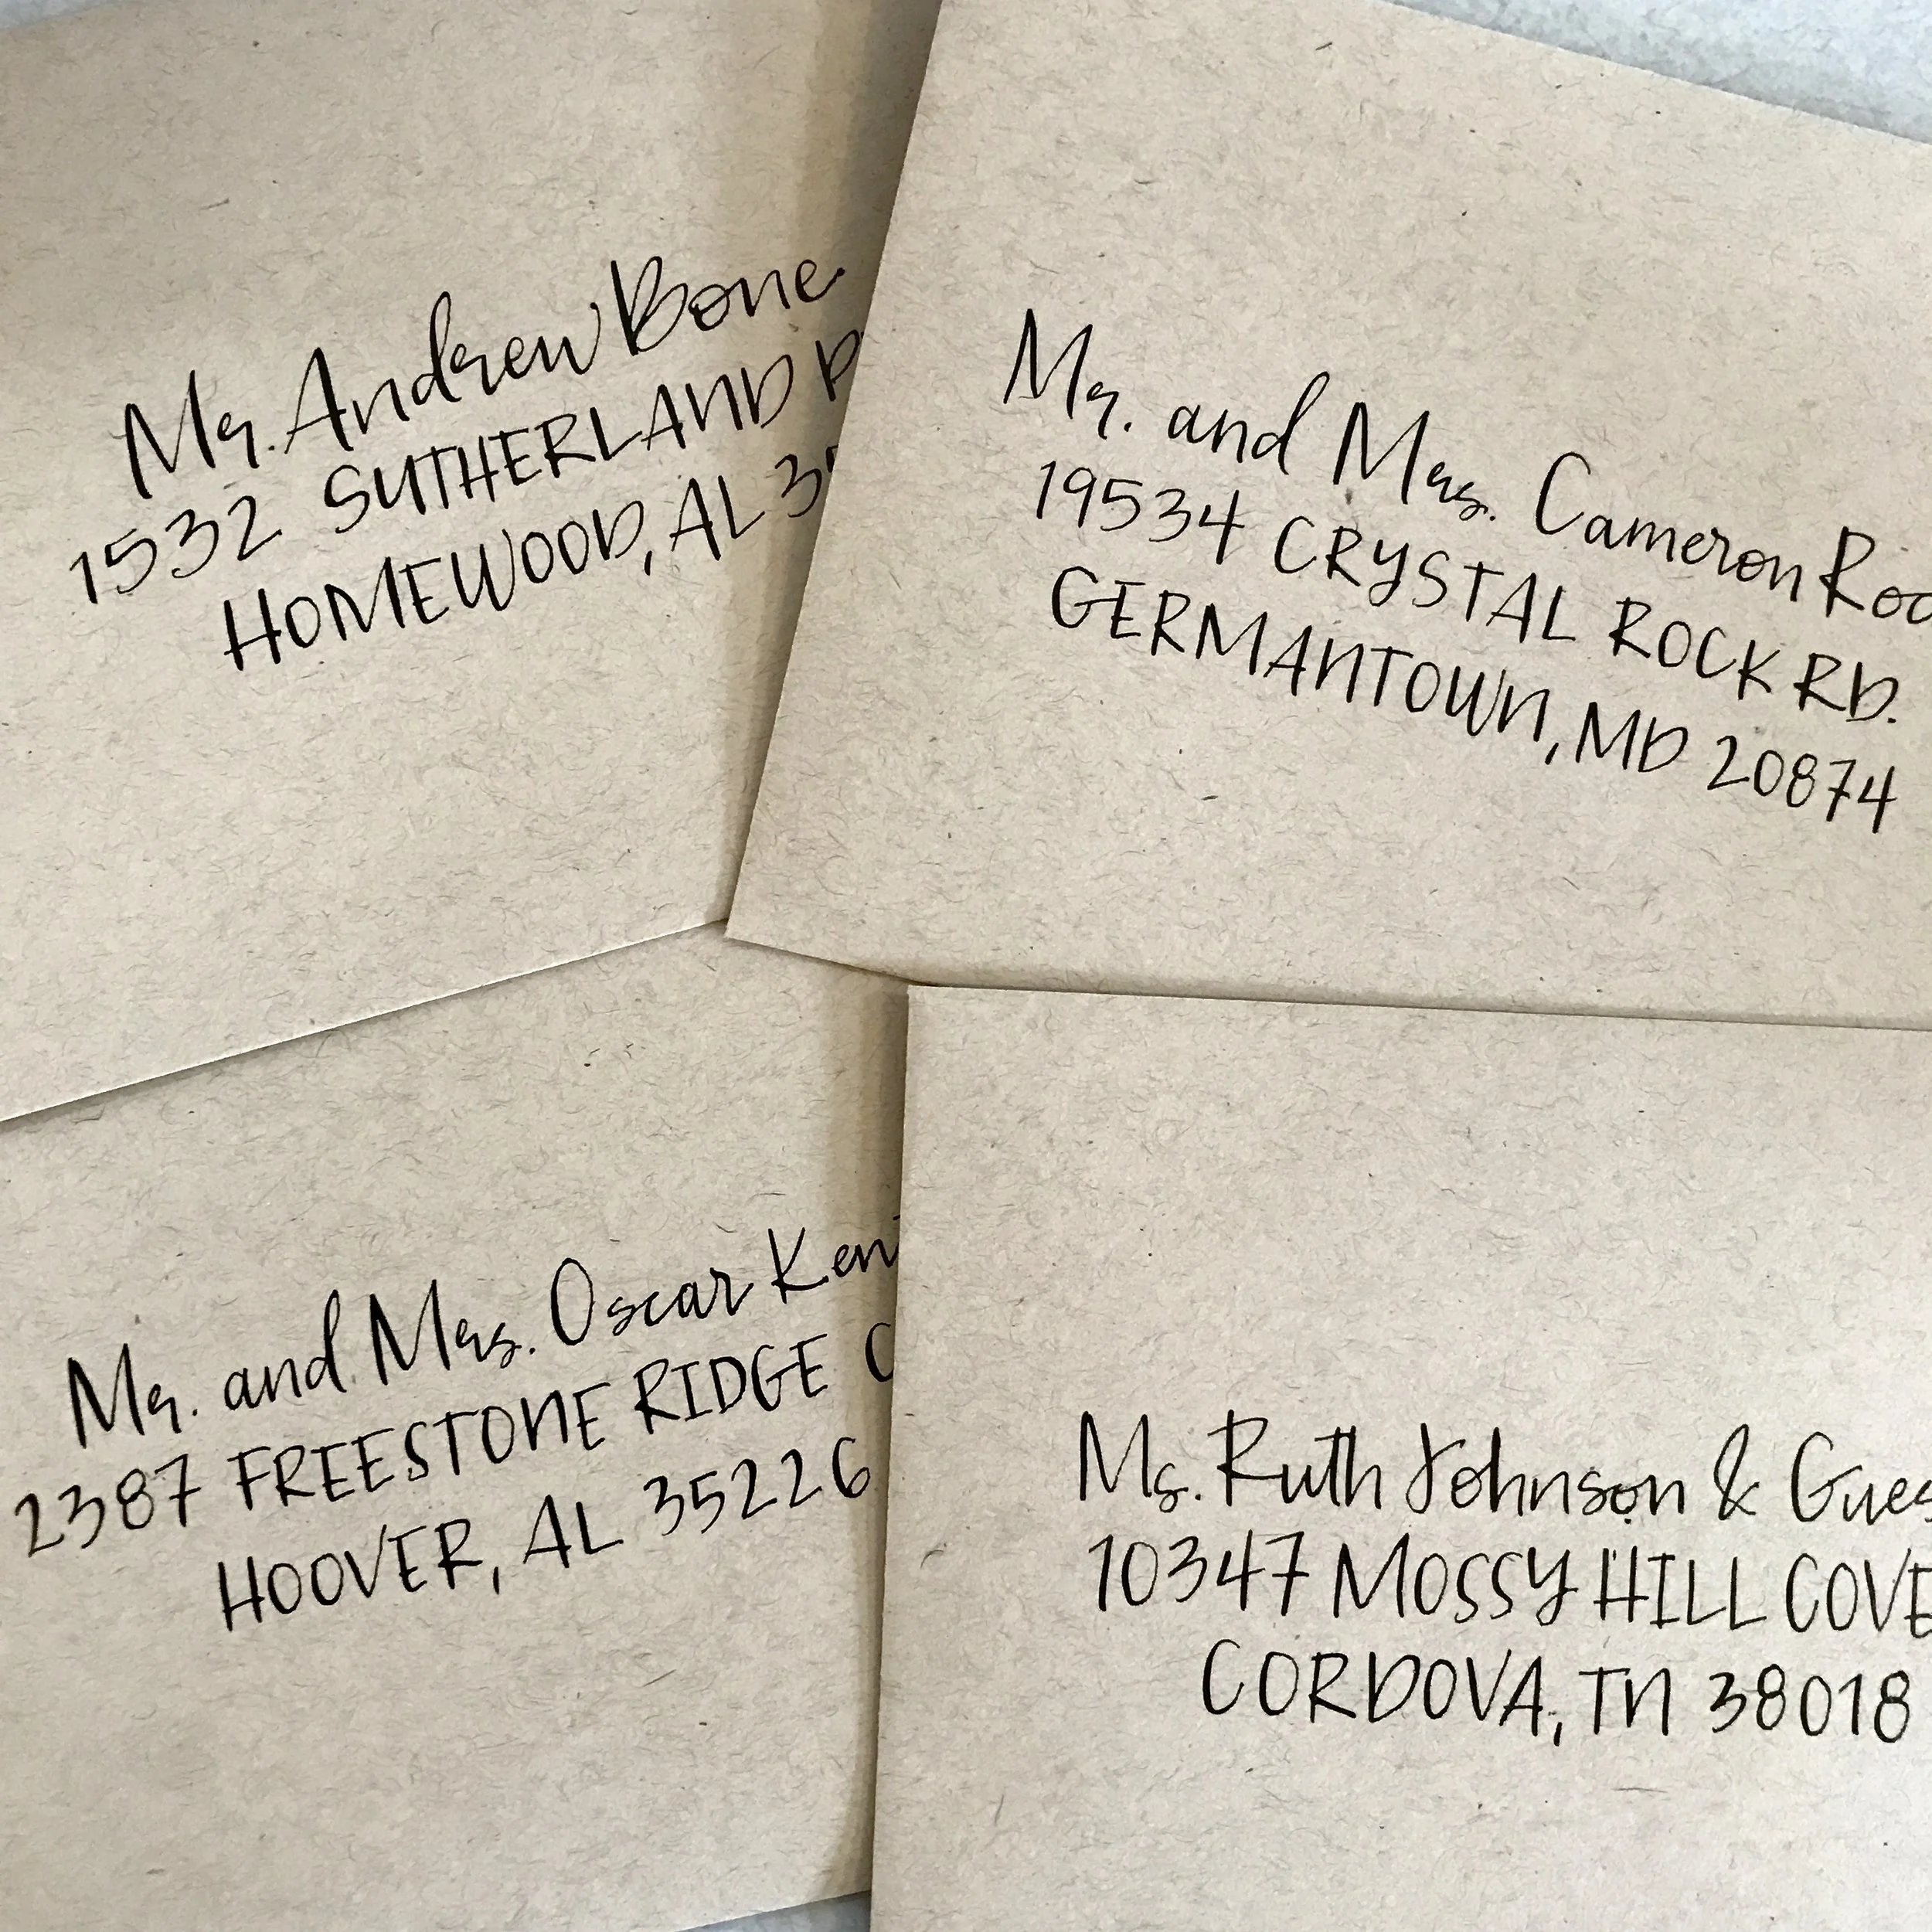 Mr. Andrew Bone
1532 SUTHERLAND
HOMEWOOD, AL
Mr. and Mrs. Cameron
19534 CRYSTAL ROCK RD.
GERMANTOWN, MD 20874
Mr. and Mrs. Oscar
2387 FREESTONE RIDGE
HOOVER, AL 35226
Ms. Ruth Johnson &
10347 MOSSY HILL COVE
CORDOVA, TN 38018